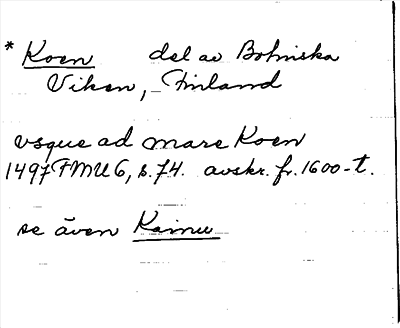 * Koen del av Botniska
Viken, Finland
usque ad mare Koen
1497 FMU 6, s. 74. avskr. fr. 1600-t.
se även Kainu